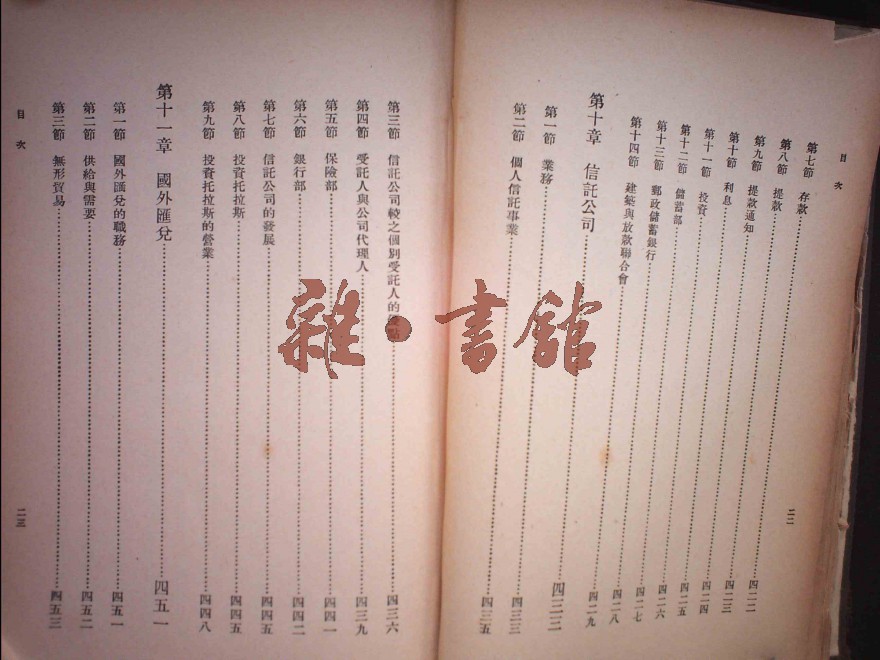 目次
第七節 存款……四二二
第八節 提款……四二三
第九節 提款通知……四二四
第十節 利息……四二五
第十一節 投資……四二六
第十二節 儲蓄部……四二七
第十三節 郵政儲蓄銀行……四二八
第十四節 建築與放款聯合會……四二九
第十章 信託公司……四三三
第一節 業務……四三三
第二節 個人信託事業……四三五
二二
第三節 信託公司較之個別受託人的點……四三六
第四節 受託人與公司代理人……四三九
第五節 保險部……四四一
第六節 銀行部……四四二
第七節 信託公司的發展……四四五
第八節 投資托拉斯……四四五
第九節 投資托拉斯的營業……四四八
第十一章 國外匯兌……四五一
第一節 國外匯兌的職務……四五一
第二節 供給與需要……四五二
第三節 無形貿易……四五三
目次
二三
雜·書館